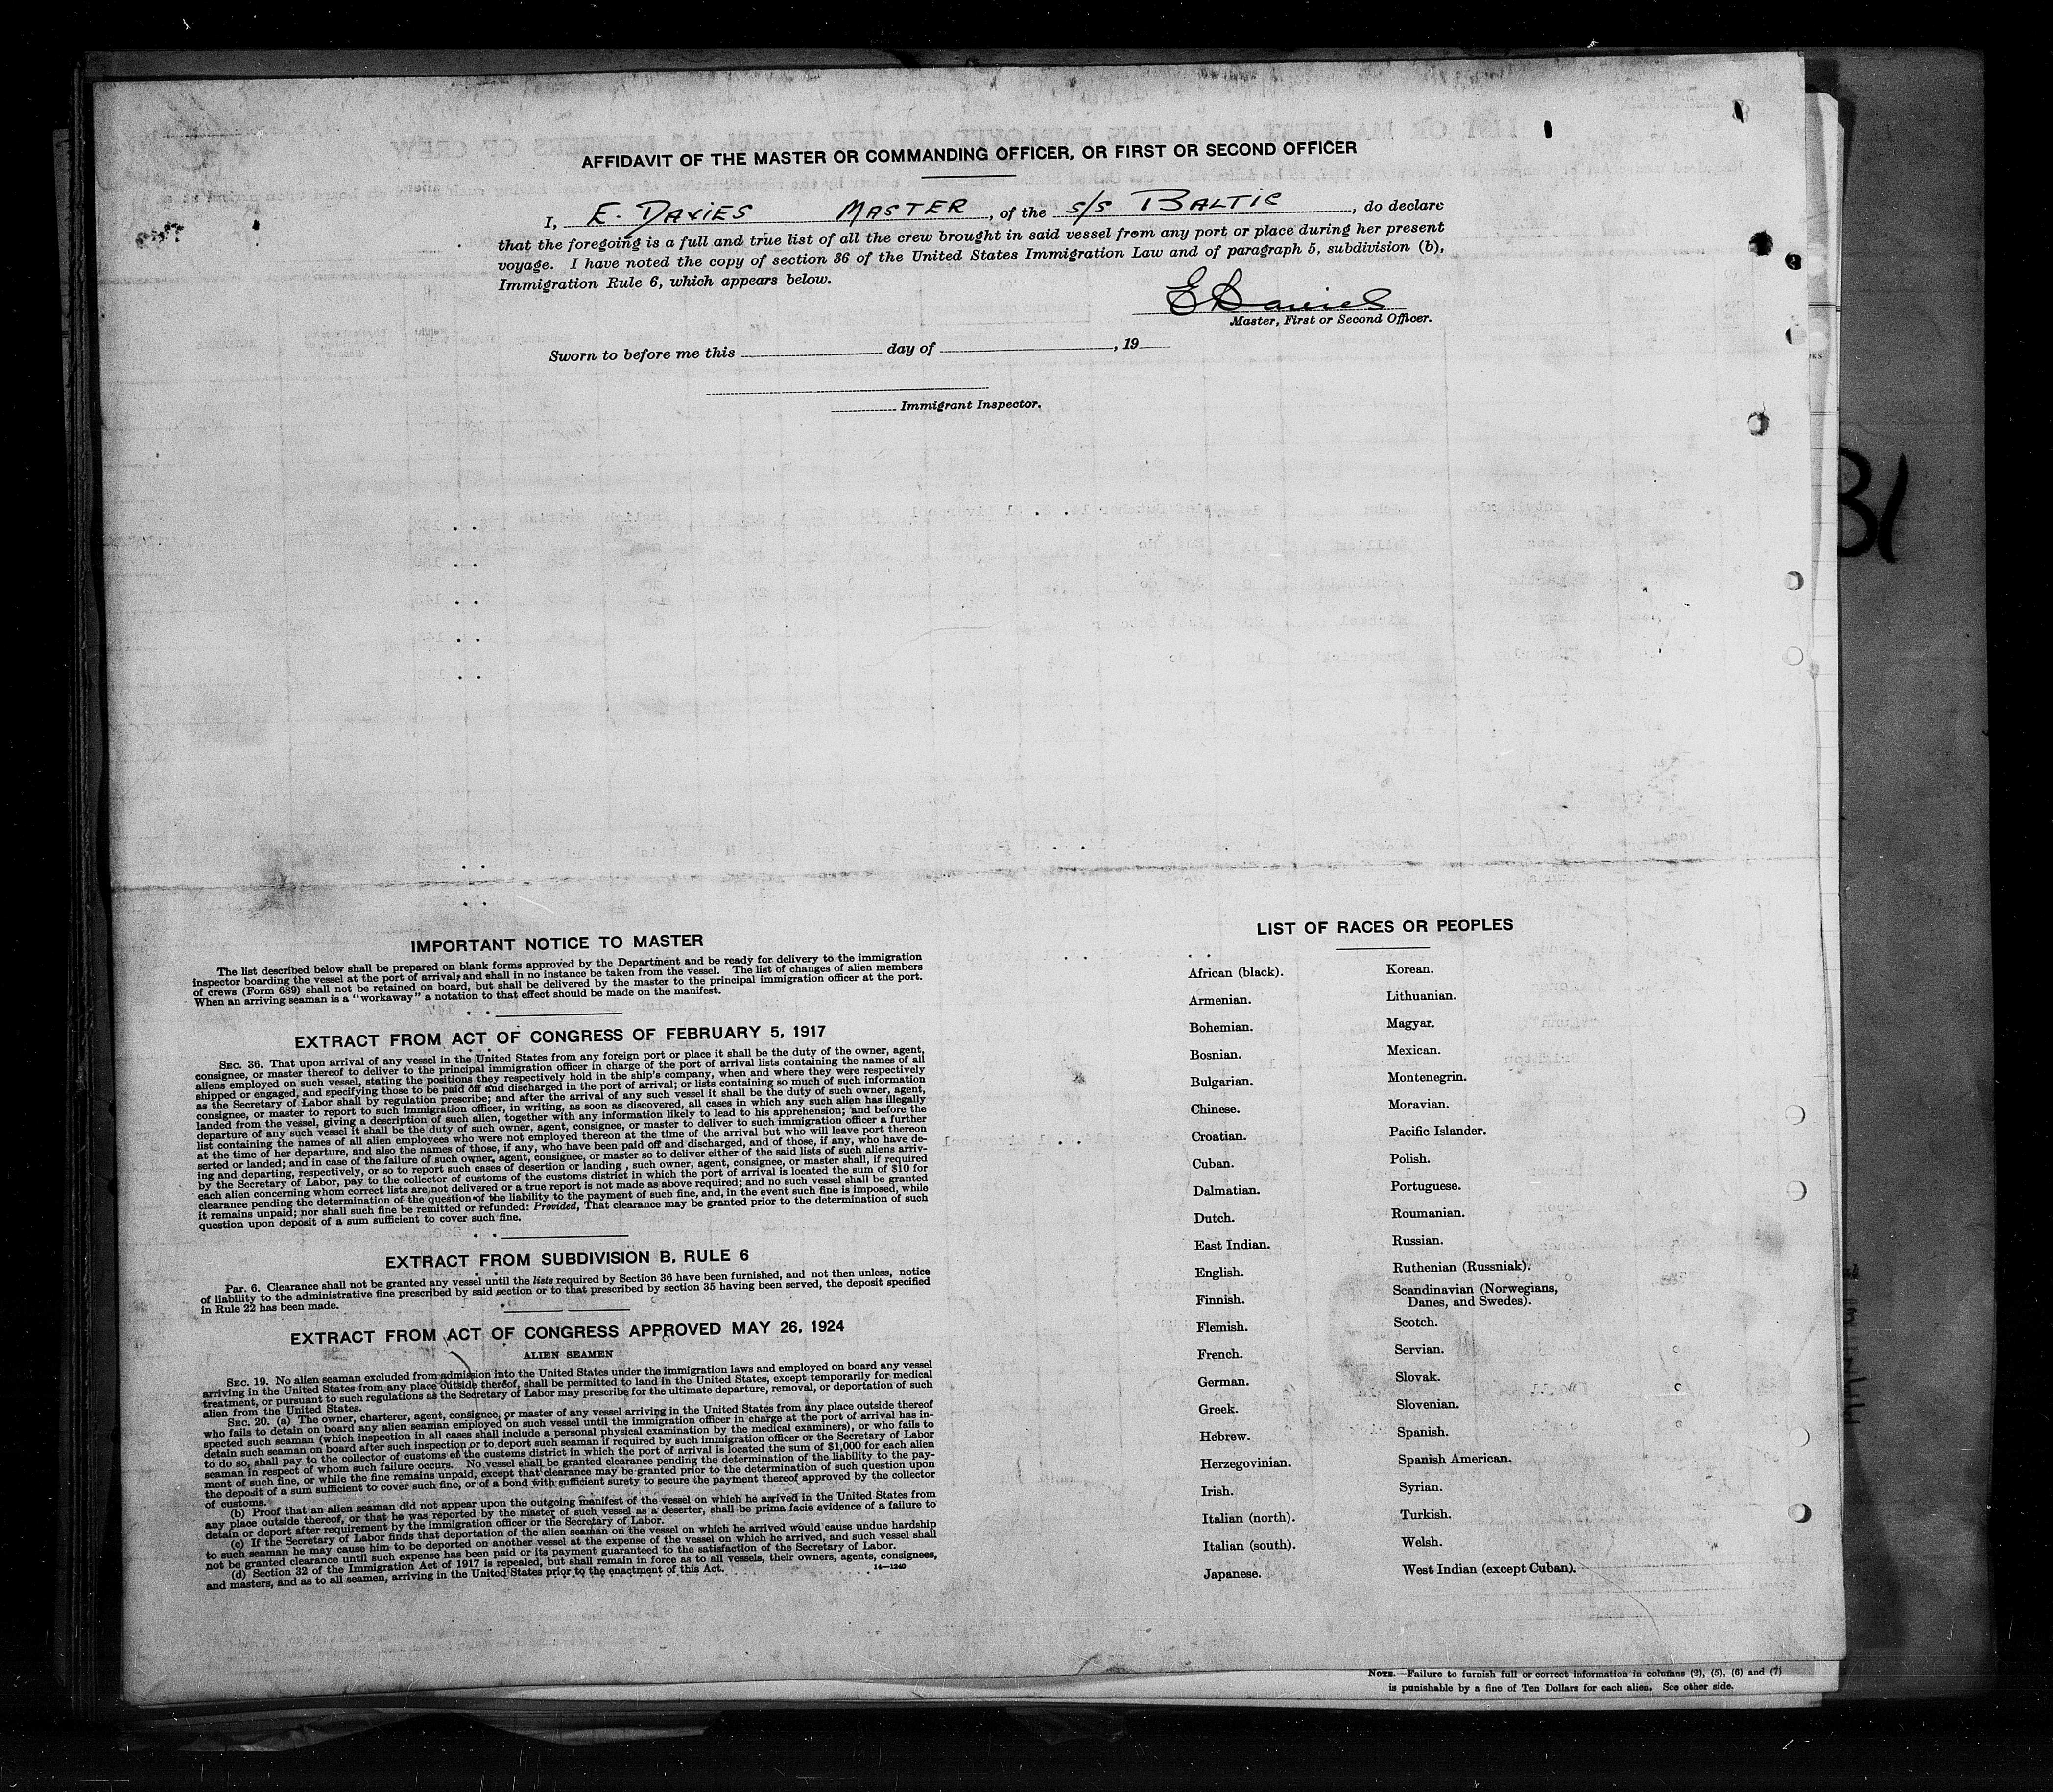 AFFIDAVIT OF THE MASTER OR COMMANDING OFFICER, OR FIRST OR SECOND OFFICER
I, E. DAVIES MASTER, of the S/S BALTIC, do declare
that the foregoing is a full and true list of all the crew brought in said vessel from any port or place during her present
voyage. I have noted the copy of section 36 of the United States Immigration Law and of paragraph 5, subdivision (b),
Immigration Rule 6, which appears below.
E Davies
Master, First or Second Officer.
Sworn to before me this day of , 19
Immigrant Inspector.
31
IMPORTANT NOTICE TO MASTER
The list described below shall be prepared on blank forms approved by the Department and be ready for delivery to the immigration
inspector boarding the vessel at the port of arrival, and shall in no instance be taken from the vessel. The list of changes of alien members
of crews (Form 689) shall not be retained on board, but shall be delivered by the master to the principal immigration officer at the port.
When an arriving seaman is a "workaway" a notation to that effect should be made on the manifest.
EXTRACT FROM ACT OF CONGRESS OF FEBRUARY 5, 1917
SEC. 36. That upon arrival of any vessel in the United States from any foreign port or place it shall be the duty of the owner, agent,
consignee, or master thereof to deliver to the principal immigration officer in charge of the port of arrival lists containing the names of all
aliens employed on such vessel, stating the positions they respectively hold in the ship's company, when and where they were respectively
shipped or engaged, and specifying those to be paid off and discharged in the port of arrival; or lists containing so much of such information
as the Secretary of Labor shall by regulation prescribe; and after the arrival of any such vessel it shall be the duty of such owner, agent,
consignee, or master to report to such immigration officer, in writing, as soon as discovered, all cases in which any such alien has illegally
landed from the vessel, giving a description of such alien, together with any information likely to lead to his apprehension; and before the
departure of any such vessel it shall be the duty of such owner, agent, consignee, or master to deliver to such immigration officer a further
list containing the names of all alien employees who were not employed thereon at the time of the arrival but who will leave port thereon
at the time of her departure, and also the names of those, if any, who have been paid off and discharged, and of those, if any, who have de-
serted or landed; and in case of the failure of such owner, agent, consignee, or master so to deliver either of the said lists of such aliens arriv-
ing and departing, respectively, or so to report such cases of desertion or landing, such owner, agent, consignee, or master shall, if required
by the Secretary of Labor, pay to the collector of customs of the customs district in which the port of arrival is located the sum of $10 for
each alien concerning whom correct lists are not delivered or a true report is not made as above required; and no such vessel shall be granted
clearance pending the determination of the question of the liability to the payment of such fine, and, in the event such fine is imposed, while
it remains unpaid; nor shall such fine be remitted or refunded: Provided, That clearance may be granted prior to the determination of such
question upon deposit of a sum sufficient to cover such fine.
EXTRACT FROM SUBDIVISION B, RULE 6
Par. 6. Clearance shall not be granted any vessel until the lists required by Section 36 have been furnished, and not then unless, notice
of liability to the administrative fine prescribed by said section or to that prescribed by section 35 having been served, the deposit specified
in Rule 22 has been made.
EXTRACT FROM ACT OF CONGRESS APPROVED MAY 26, 1924
ALIEN SEAMEN
SEC. 19. No alien seaman excluded from admission into the United States under the immigration laws and employed on board any vessel
arriving in the United States from any place outside thereof, shall be permitted to land in the United States, except temporarily for medical
treatment, or pursuant to such regulations as the Secretary of Labor may prescribe for the ultimate departure, removal, or deportation of such
alien from the United States.
SEC. 20. (a) The owner, charterer, agent, consignee, or master of any vessel arriving in the United States from any place outside thereof
who fails to detain on board any alien seaman employed on such vessel until the immigration officer in charge at the port of arrival has in-
spected such seaman (which inspection in all cases shall include a personal physical examination by the medical examiners), or who fails to
detain such seaman on board after such inspection or to deport such seaman if required by such immigration officer or the Secretary of Labor
to do so, shall pay to the collector of customs of the customs district in which the port of arrival is located the sum of $1,000 for each alien
seaman in respect of whom such failure occurs. No vessel shall be granted clearance pending the determination of the liability to the pay-
ment of such fine, or while the fine remains unpaid, except that clearance may be granted prior to the determination of such question upon
the deposit of a sum sufficient to cover such fine, or of a bond with sufficient surety to secure the payment thereof approved by the collector
of customs.
(b) Proof that an alien seaman did not appear upon the outgoing manifest of the vessel on which he arrived in the United States from
any place outside thereof, or that he was reported by the master of such vessel as a deserter, shall be prima facie evidence of a failure to
detain or deport after requirement by the immigration officer or the Secretary of Labor.
(c) If the Secretary of Labor finds that deportation of the alien seaman on the vessel on which he arrived would cause undue hardship
to such seaman he may cause him to be deported on another vessel at the expense of the vessel on which he arrived, and such vessel shall
not be granted clearance until such expense has been paid or its payment guaranteed to the satisfaction of the Secretary of Labor.
(d) Section 32 of the Immigration Act of 1917 is repealed, but shall remain in force as to all vessels, their owners, agents, consignees,
and masters, and as to all seamen, arriving in the United States prior to the enactment of this Act.
14—1240
LIST OF RACES OR PEOPLES
African (black).
Armenian.
Bohemian.
Bosnian.
Bulgarian.
Chinese.
Croatian.
Cuban.
Dalmatian.
Dutch.
East Indian.
English.
Finnish.
Flemish.
French.
German.
Greek.
Hebrew.
Herzegovinian.
Irish.
Italian (north).
Italian (south).
Japanese.
Korean.
Lithuanian.
Magyar.
Mexican.
Montenegrin.
Moravian.
Pacific Islander.
Polish.
Portuguese.
Roumanian.
Russian.
Ruthenian (Russniak).
Scandinavian (Norwegians,
Danes, and Swedes).
Scotch.
Servian.
Slovak.
Slovenian.
Spanish.
Spanish American.
Syrian.
Turkish.
Welsh.
West Indian (except Cuban).
NOTE.—Failure to furnish full or correct information in columns (2), (5), (6) and (7)
is punishable by a fine of Ten Dollars for each alien. See other side.